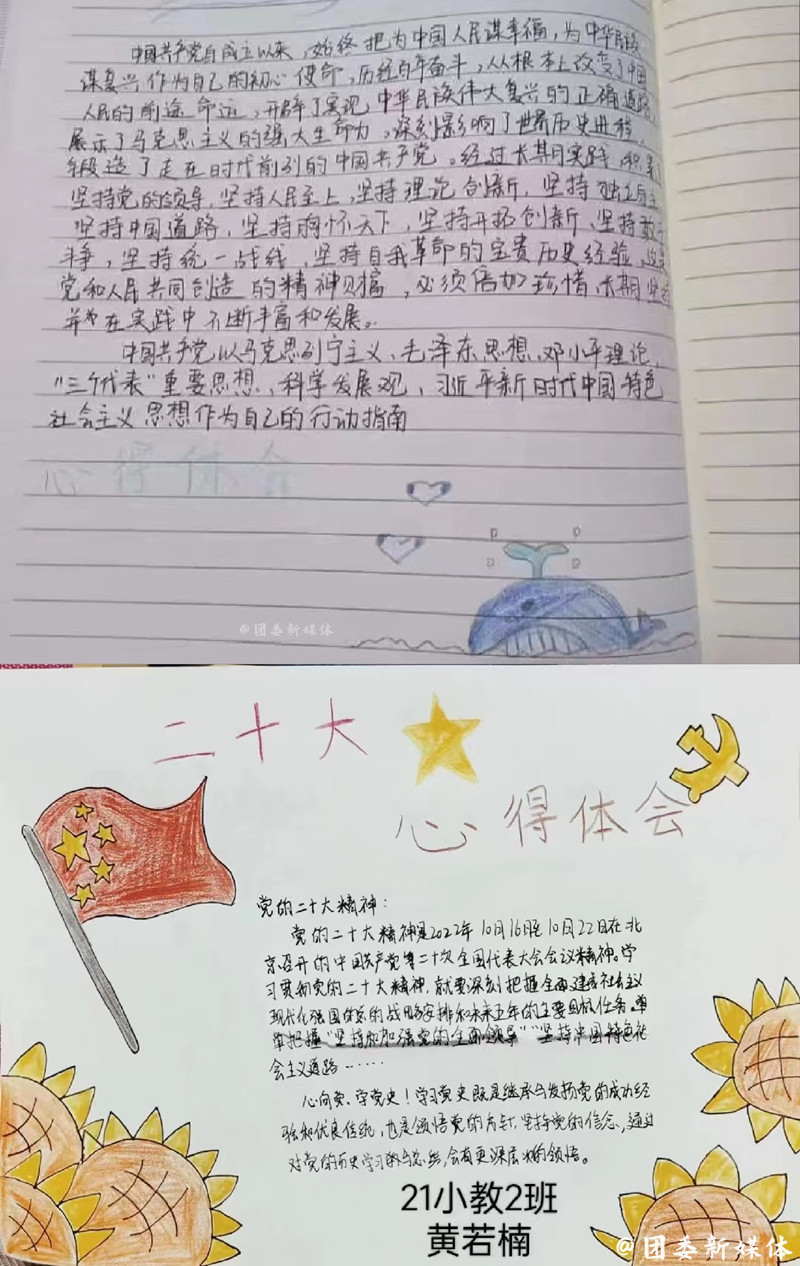 中国共产党自成立以来，始终把为中国人民谋幸福，为中华民族
谋复兴作为自己的初心使命，历经百年奋斗，从根本上改变了中国
人民的前途命运，开辟了实现中华民族伟大复兴的正确道路
展示了马克思主义的强大生命力，深刻影响了世界历史进程，
锻造了走在时代前列的中国共产党。经过长期实践，积累
坚持党的领导，坚持人民至上，坚持理论创新，坚持独立自主
坚持中国道路，坚持胸怀天下，坚持开拓创新、坚持敢于
斗争，坚持统一战线，坚持自我革命的宝贵历史经验，这是
党和人民共同创造的精神财富，必须倍加珍惜，长期坚持
并在实践中不断丰富和发展。
中国共产党以马克思列宁主义、毛泽东思想、邓小平理论、
“三个代表”重要思想、科学发展观、习近平新时代中国特色
社会主义思想作为自己的行动指南
心得体会
@团委新媒体
二十大
心得体会
党的二十大精神：
党的二十大精神是2022年10月16日至10月22日在北
京召开的中国共产党第二十次全国代表大会会议精神。学
习贯彻党的二十大精神，就要深刻把握全面建成社会主义
现代化强国的战略安排和未来五年的主要目标任务。
把握“坚持和加强党的全面领导”“坚持中国特色社
会主义道路……
心向党、学党史！学习党史既是继承与发扬党的成功经
验和优良传统，也是领悟党的方针，坚持党的信念，通过
对党的历史学习和总结，会有更深层次的领悟。
21小教2班
黄若楠
@团委新媒体